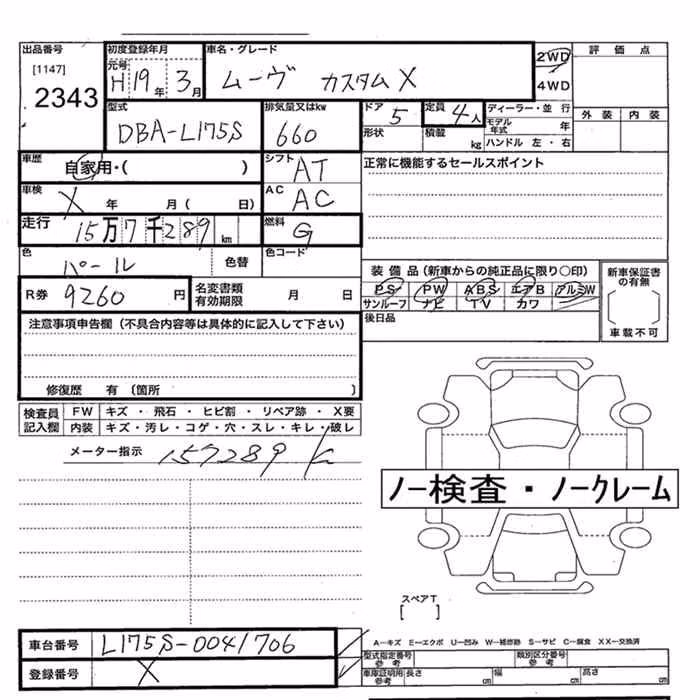 出品番号 初度登録年月 車名・グレード 2WD 評価点
[1147] 元号 H19年 3月 ムーヴ カスタムX 4WD
2343 型式 排気量又はkw ドア 5 定員 4人 ディーラー・並行 外装 内装
DBA-L175S 660 形状 積載 kg モデル年式 年
ハンドル 左・右
車歴 自家用・( ) シフト AT 正常に機能するセールスポイント
車検 X 年 月 ( 日) AC AC
走行 15万7千289 km 燃料 G
色 パール 色替 色コード
装備品(新車からの純正品に限り○印) 新車保証書の有無
R券 9260円 名変書類有効期限 月 日 PS PW ABS エアB アルミW
サンルーフ ナビ TV カワ 車載不可
注意事項申告欄 (不具合内容等は具体的に記入して下さい) 後日品
修復歴 有 (箇所 )
検査員記入欄 FW キズ・飛石・ヒビ割・リペア跡・X要
内装 キズ・汚レ・コゲ・穴・スレ・キレ・破レ
メーター指示 157289 K
ノー検査・ノークレーム
スペアT
[ ]
車台番号 L175S-0041706 A―キズ E―エクボ U―凹み W―補修跡 S―サビ C―腐食 XX―交換済
型式指定番号 参考 類別区分番号 参考
登録番号 X 車庫証明用 参考 長さ cm 幅 cm 高さ cm